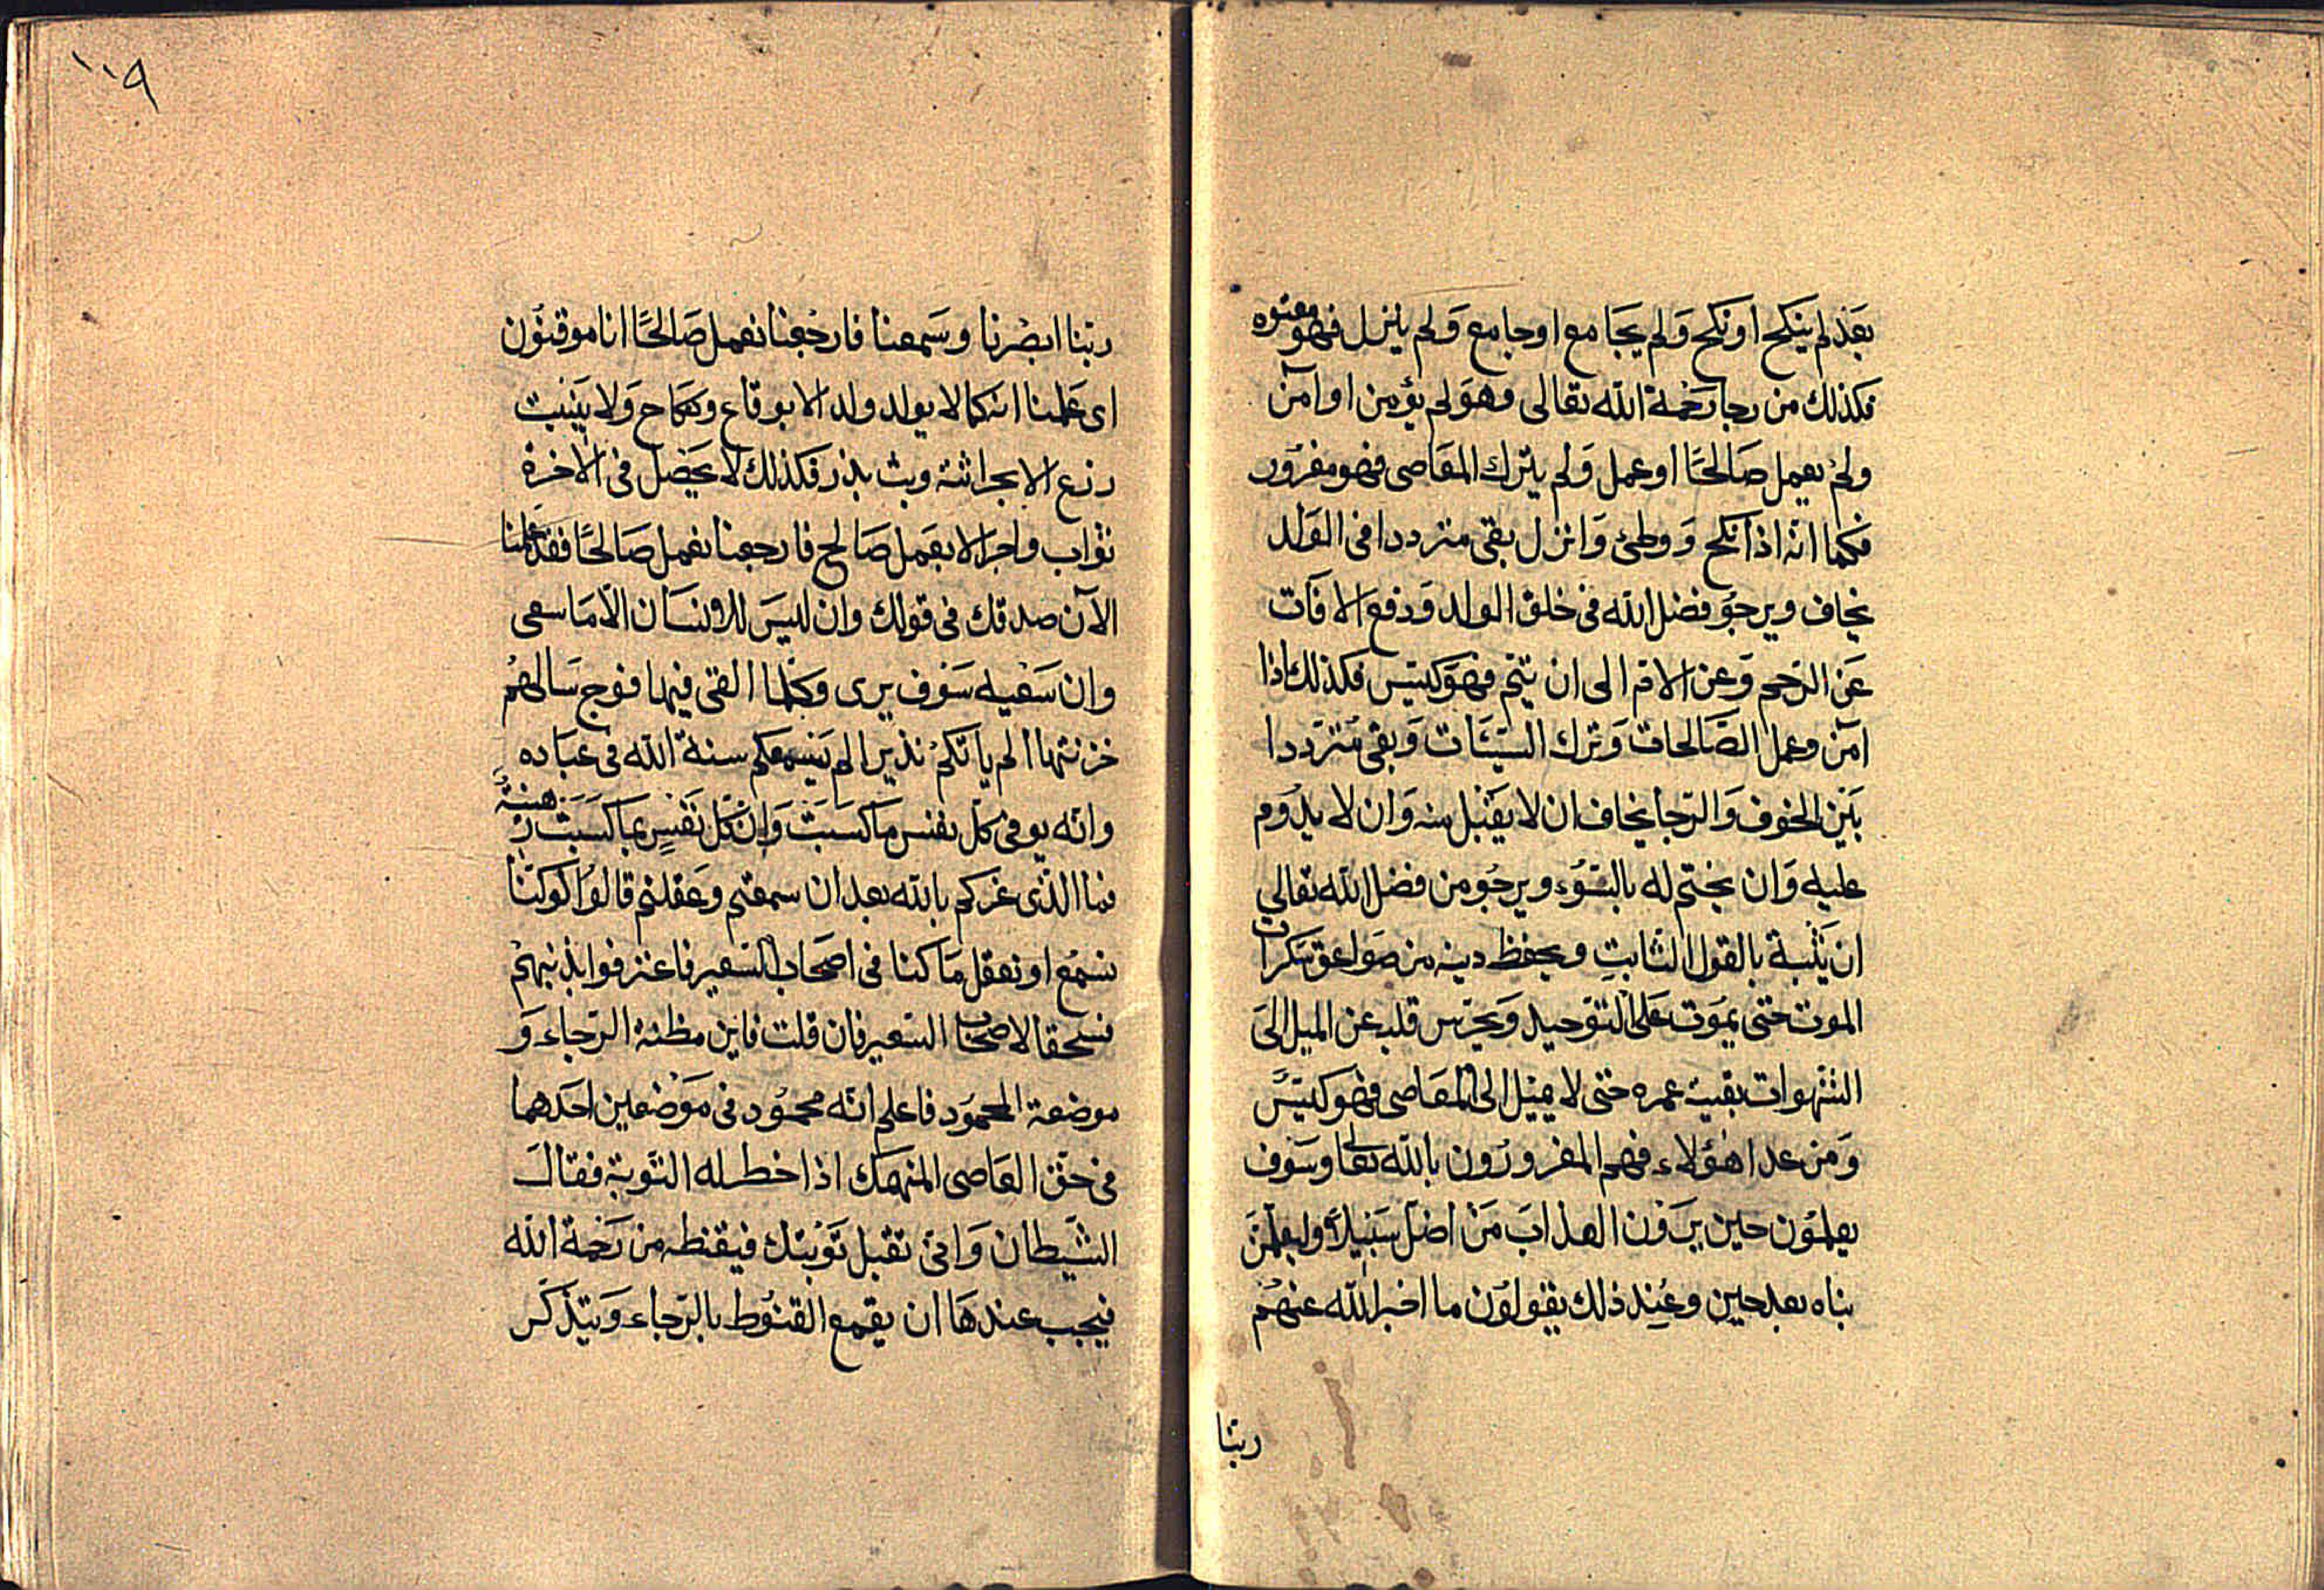 بعد لم ينكح او نكح ولم يجامع او جامع ولم ينزل فهو معتوه
فكذلك من رجا رحمة الله تعالى وهو لم يؤمن او امن
ولم يعمل صالحًا او عمل ولم يترك المعاصى فهو مغرور
فكما انه اذا نكح ووطئ وانزل بقى مترددا فى الولد
يخاف ويرجو فضل الله فى خلق الولد ودفع الافات
عن الرحم وعن الام الى ان يتم فهو كيس فكذلك اذا
امن وعمل الصالحات وترك السيئات وبقى مترددا
بين الخوف والرجا يخاف ان لا يقبل منه وان لا يدوم
عليه وان يختم له بالسوء ويرجو من فضل الله تعالى
ان يثبته بالقول الثابت ويحفظ دينه من صواعق سكرات
الموت حتى يموت على التوحيد ويحرس قلبه عن الميل الى
الشهوات بقية عمره حتى لا يميل الى المعاصى فهو كيس
ومن عدا هؤلاء فهم المغرورون بالله تعالى وسوف
يعلمون حين يرون العذاب من اضل سبيلاً ولتعلمن
نباه بعد حين وعند ذلك يقولون ما اخبر الله عنهم
ربنا
١٠٩
ربنا ابصرنا وسمعنا فارجعنا نعمل صالحًا انا موقنون
اى علمنا انه كما لا يولد ولد الا بوقاع ونكاح ولا ينبت
زرع الا بحراثة وبث بذر فكذلك لا يحصل فى الاخرة
ثواب واجر الا بعمل صالح فارجعنا نعمل صالحًا فقد علمنا
الآن صدقك فى قولك وان ليس للانسان الا ما سعى
وان سعيه سوف يرى وكلما القى فيها فوج سالهم
خزنتها الم ياتكم نذير الم يسمعكم سنة الله فى عباده
وانه يوفى كل نفس ما كسبت وان كل نفس بما كسبت رهينة
فما الذى غركم بالله بعد ان سمعتم وعقلتم قالوا لو كنا
نسمع او نعقل ما كنا فى اصحاب السعير فاعترفوا بذنبهم
فسحقا لاصحاب السعير فان قلت فاين مظنة الرجاء و
موضعه المحمود فاعلم انه محمود فى موضعين احدهما
فى حق العاصى المنهمك اذا خطر له التوبة فقال
الشيطان وانى تقبل توبتك فيقنطه من رحمة الله
فيجب عندها ان يقمع القنوط بالرجاء ويتذكر